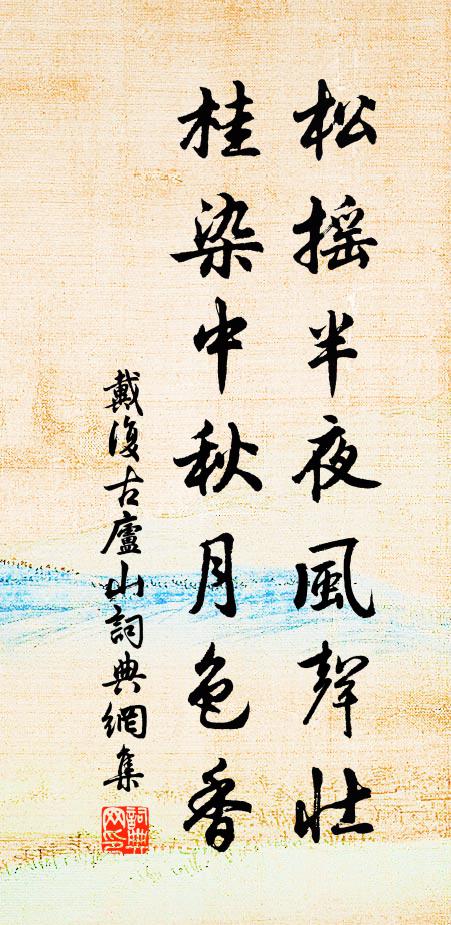 松搖半夜風聲壯
桂染中秋月色香
戴復古廬山詞典網集
詞典
网印